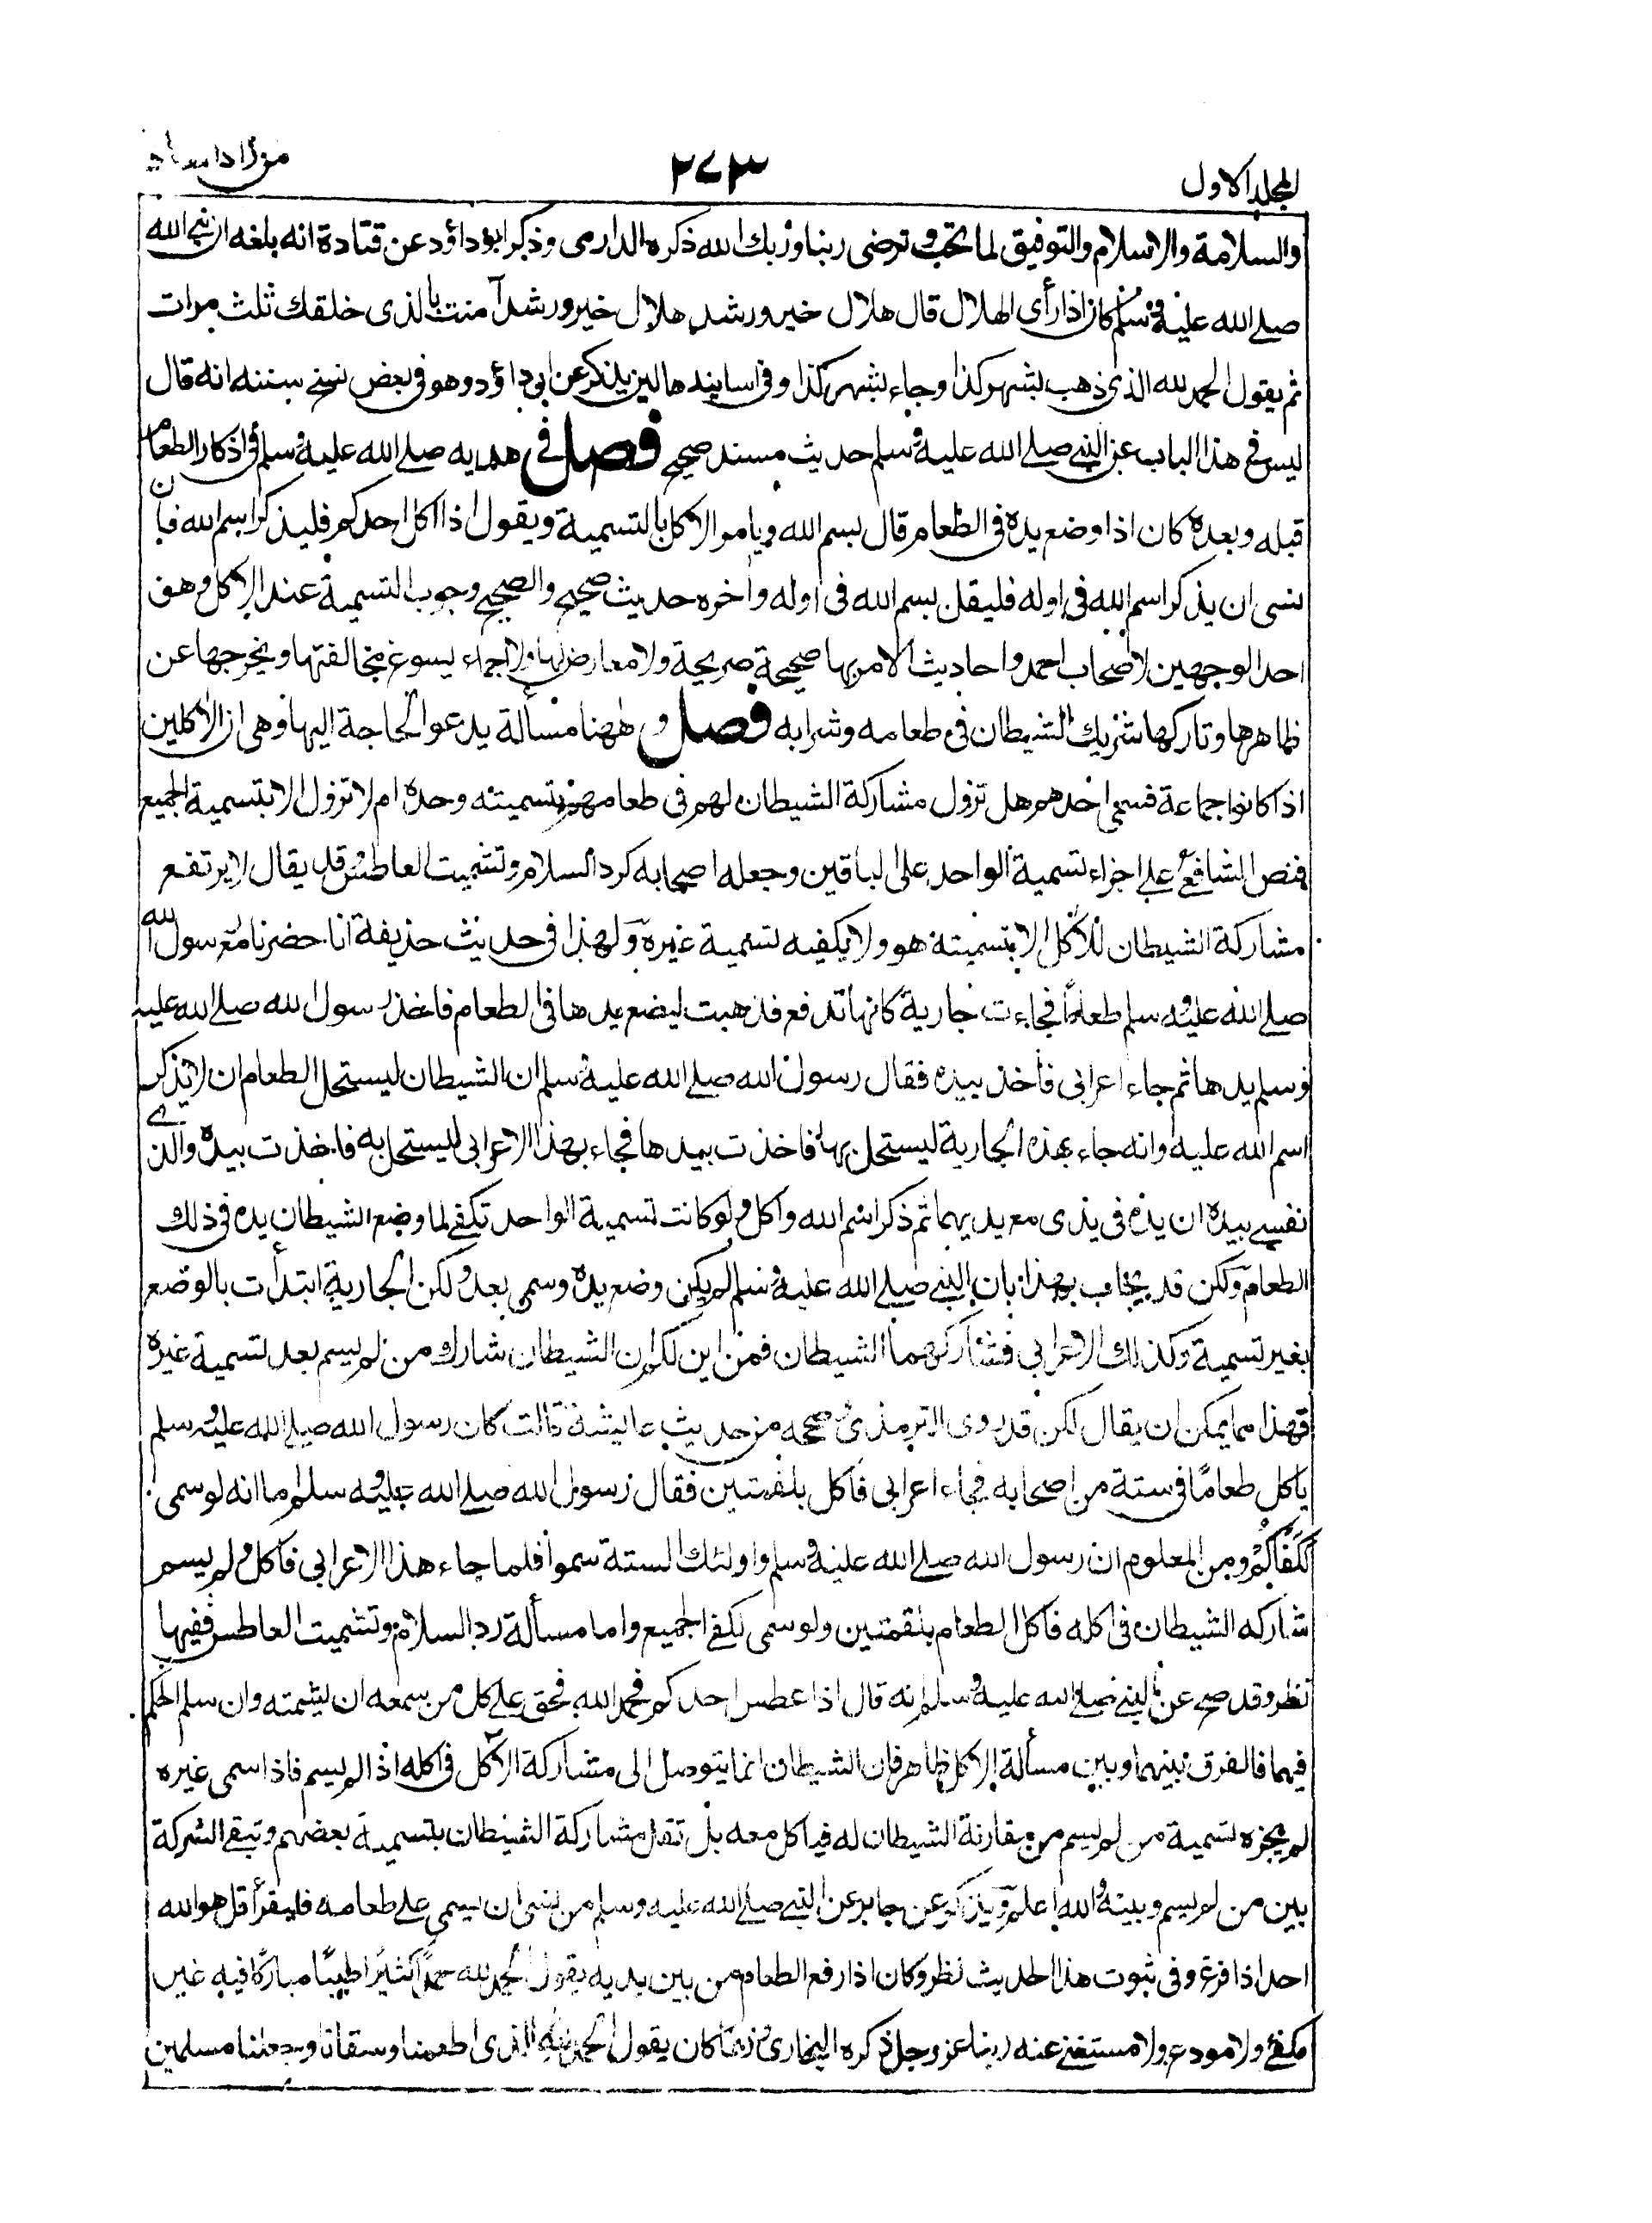 المجلد الاول
٢٧٣
من زاد المعاد
والسلامة والاسلام والتوفيق لما تحب وترضى ربنا وربك الله ذكره الدارمى وذكر ابو داؤد عن قتادة انه بلغه ان نبى الله
صلے الله عليه وسلم كان اذا رأى الهلال قال هلال خير ورشد هلال خير ورشد آمنت بالذى خلقك ثلث مرات
ثم يقول الحمد لله الذى ذهب بشهر كذا وجاء بشهر كذا وفى اسانيدها لين يذكر عن ابى داؤد وهو فى بعض نسخ سننه انه قال
ليس فى هذا الباب عن النبى صلے الله عليه وسلم حديث مسند صحيح فصل فى هديه صلے الله عليه وسلم فى اذكار الطعام
قبله وبعده كان اذا وضع يده فى الطعام قال بسم الله ويامر الاكل بالتسمية ويقول اذا اكل احدكم فليذكر اسم الله فان
نسى ان يذكر اسم الله فى اوله فليقل بسم الله فى اوله وآخره حديث صحيح والصحيح وجوب التسمية عند الاكل وهو
احد الوجهين لاصحاب احمد واحاديث الامر بها صحيحة صريحة ولا معارض لها ولا اجماع يسوغ مخالفتها ويخرجها عن
ظاهرها وتاركها شريك الشيطان فى طعامه وشرابه فصل وههنا مسألة يدعو الحاجة اليها وهى ان الآكلين
اذا كانوا جماعة فسمى احدهم هل تزول مشاركة الشيطان لهم فى طعامهم بتسميته وحده ام لا تزول الا بتسمية الجميع
فنص الشافعى على اجزاء تسمية الواحد على الباقين وجعله اصحابه كرد السلام وتشميت العاطس وقد يقال لا يرتفع
مشاركة الشيطان للآكل الا بتسميته هو ولا يكفيه تسمية غيره ولهذا فى حديث حذيفة انا حضرنا مع رسول الله
صلے الله عليه وسلم طعاماً فجاءت جارية كانها تدفع فذهبت ليضع يدها فى الطعام فاخذ رسول الله صلے الله عليه
وسلم يدها ثم جاء اعرابى فأخذ بيده فقال رسول الله صلے الله عليه وسلم ان الشيطان ليستحل الطعام ان لا يذكر
اسم الله عليه وانه جاء بهذه الجارية ليستحل بها فاخذت بيدها فجاء بهذا الاعرابى ليستحل به فاخذت بيده والذى
نفسى بيده ان يده فى يدى مع يديهما ثم ذكر اسم الله واكل ولو كانت تسمية الواحد تكفى لما وضع الشيطان يده فى ذلك
الطعام ولكن قد يجاب بهذا بان النبى صلے الله عليه وسلم لم يكن وضع يده وسمى بعد ولكن الجارية ابتدأت بالوضع
بغير تسمية وكذلك الاعرابى فشاركهما الشيطان فمن اين لكم ان الشيطان شارك من لم يسم بعد تسمية غيره
فهذا مما يمكن ان يقال لكن قد روى الترمذى وصححه من حديث عايشة قالت كان رسول الله صلے الله عليه وسلم
ياكل طعامًا فى ستة من اصحابه فجاء اعرابى فأكل بلقمتين فقال رسول الله صلے الله عليه وسلم اما انه لو سمى
لكفاكم ومن المعلوم ان رسول الله صلے الله عليه وسلم واولئك الستة سموا فلما جاء هذا الاعرابى فاكل ولم يسم
شاركه الشيطان فى اكله فاكل الطعام بلقمتين ولو سمى لكفى الجميع واما مسألة رد السلام وتشميت العاطس ففيها
نظر وقد صح عن النبى صلے الله عليه وسلم انه قال اذا عطس احدكم فحمد الله فحق على كل من سمعه ان يشمته وان سلم الحكم
فيهما فالفرق بينهما وبين مسألة الاكل ظاهر فان الشيطان انما يتوصل الى مشاركة الآكل فى اكله اذا لم يسم فاذا سمى غيره
لم يجزه تسمية من لم يسم من مقارنة الشيطان له فياكل معه بل تقل مشاركة الشيطان بتسمية بعضهم وتبقى الشركة
بين من لم يسم وبينه والله اعلم ويذكر عن جابر عن النبى صلے الله عليه وسلم من نسى ان يسمى على طعامه فليقرأ قل هو الله
احد اذا فرغ وفى ثبوت هذا الحديث نظر وكان اذا رفع الطعام من بين يديه يقول الحمد لله حمدًا كثيرًا طيبًا مباركًا فيه غير
مكفى ولا مودع ولا مستغنى عنه ربنا عز وجل ذكره البخارى وربما كان يقول الحمد لله الذى اطعمنا وسقانا وجعلنا مسلمين